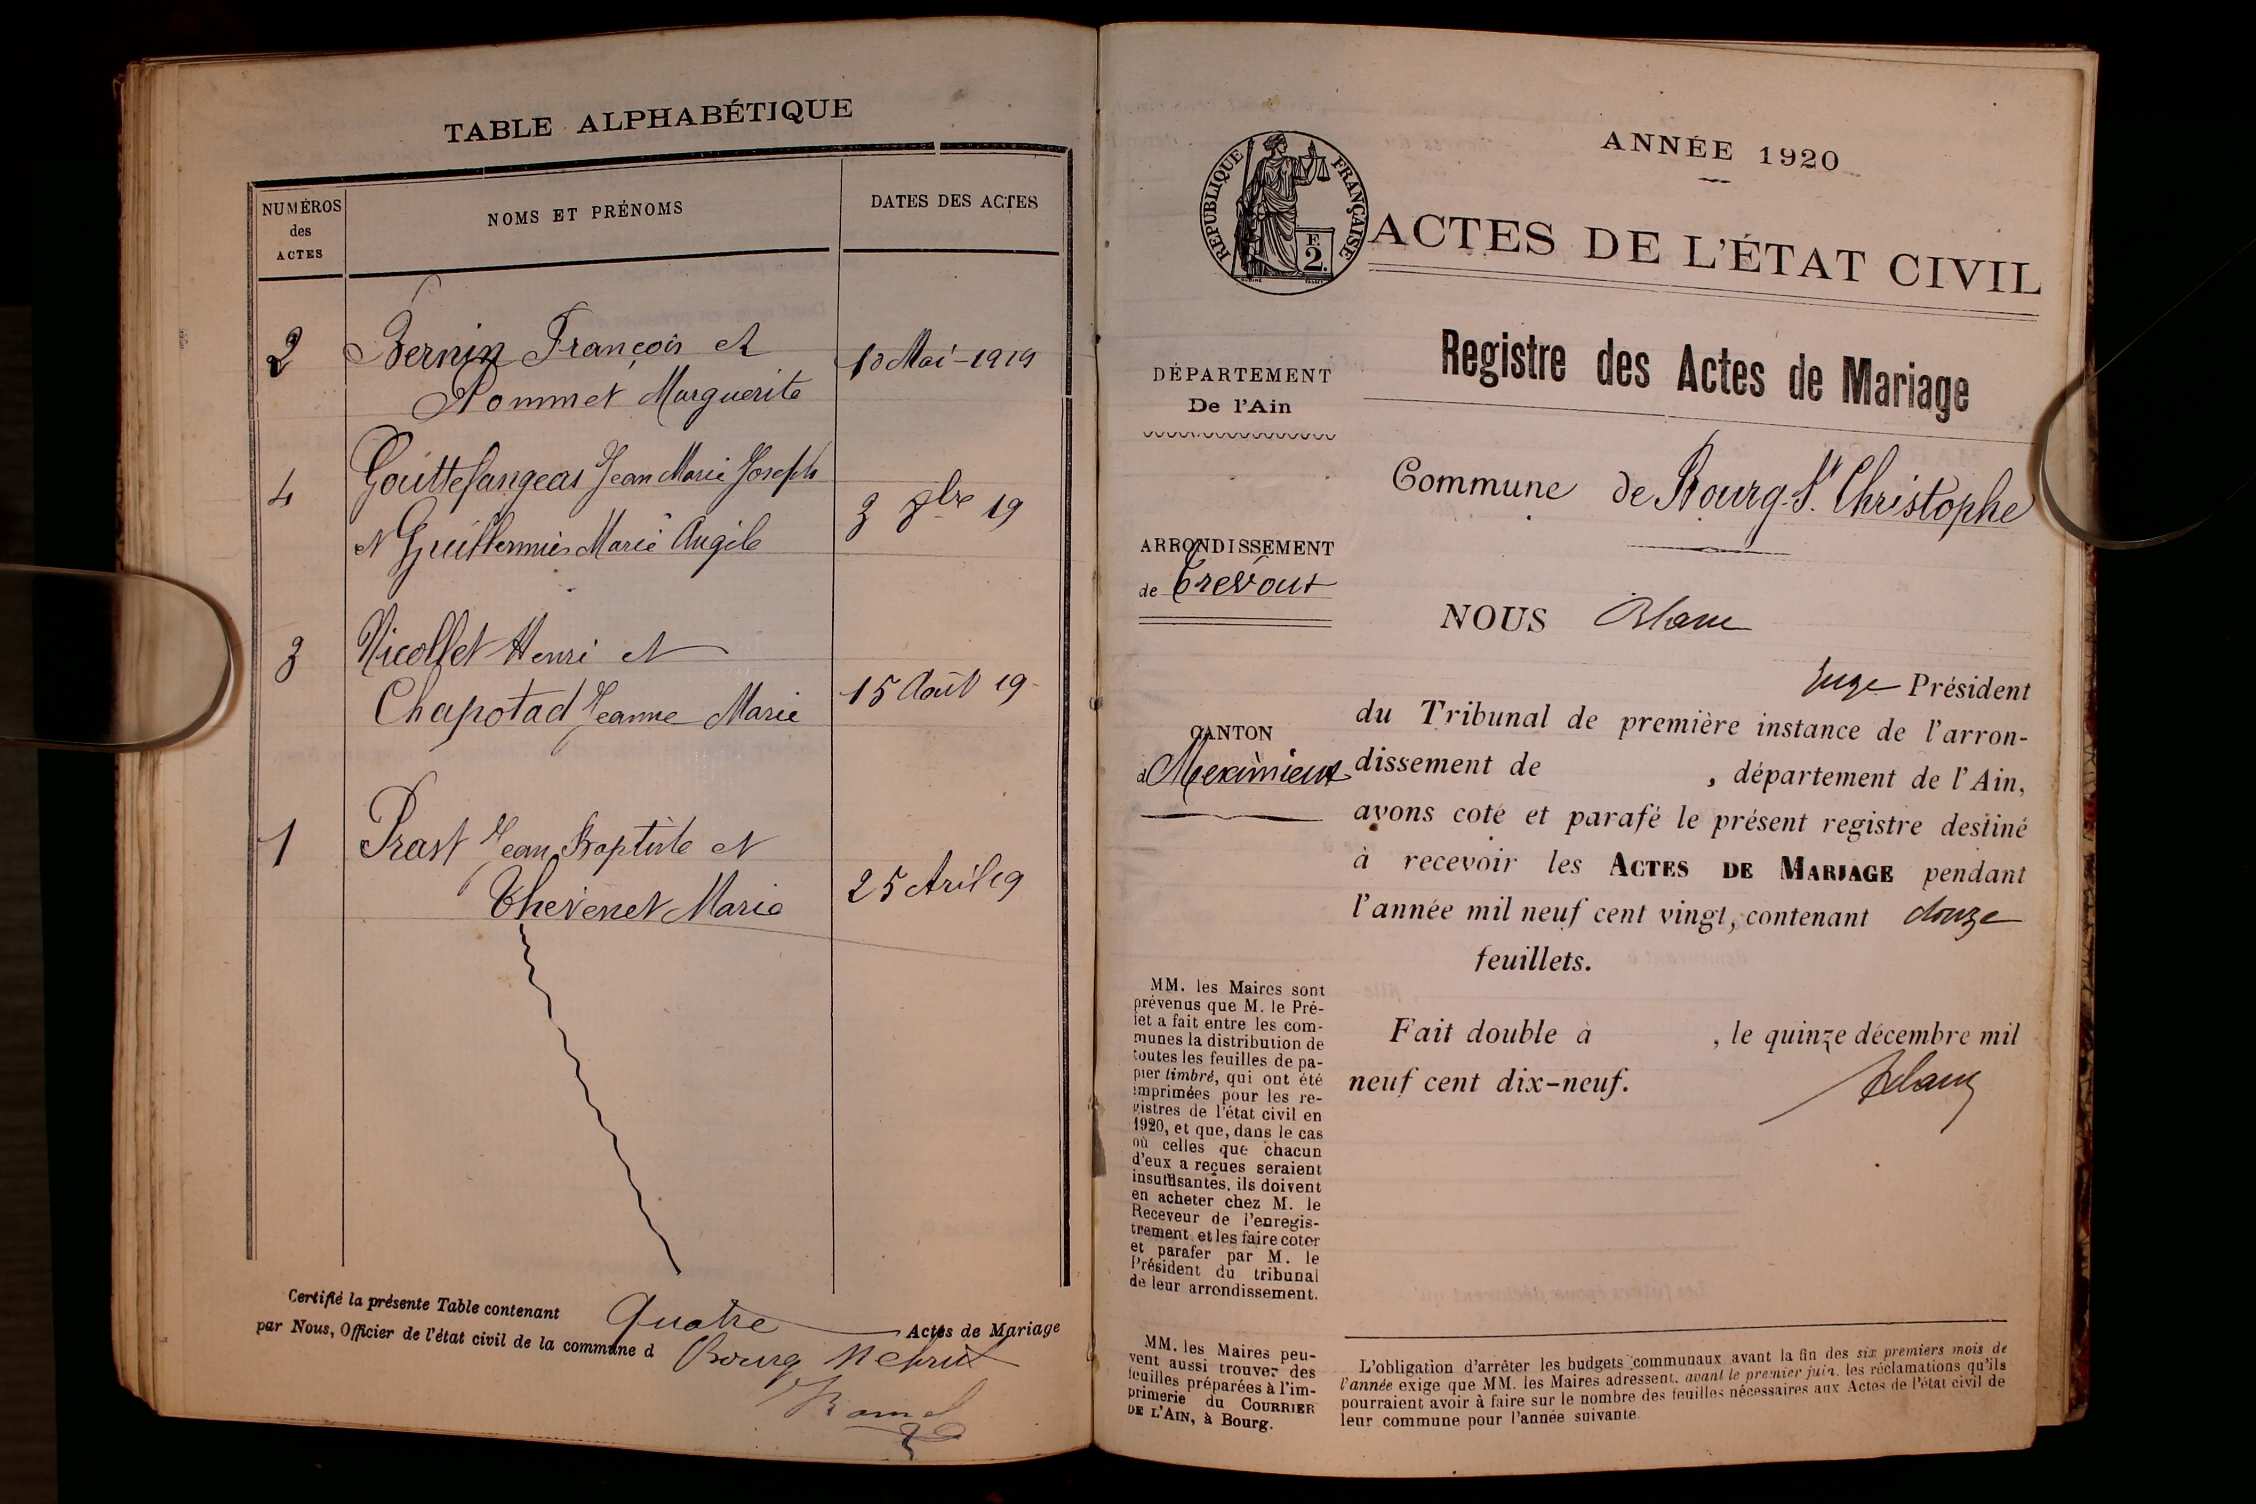 TABLE ALPHABÉTIQUE
NUMÉROS
des
ACTES
NOMS ET PRÉNOMS
DATES DES ACTES
2
Bernin François et
Pommet Marguerite
10 Mai - 1919
4
Gouttefangeas Jean Marie Joseph
et Guillermin Marie Angèle
3 9bre 19
3
Nicollet Henri et
Chapotad Jeanne Marie
15 Août 19
1
Prast Jean Baptiste et
Thévenet Marie
25 Avril 19
Certifié la présente Table contenant Quatre Actes de Mariage
par Nous, Officier de l'état civil de la commune d Bourg St Christ
ANNÉE 1920
RÉPUBLIQUE FRANÇAISE
F.
2.
ACTES DE L'ÉTAT CIVIL
Registre des Actes de Mariage
DÉPARTEMENT
De l'Ain
Commune de Bourg-St Christophe
ARRONDISSEMENT
de Trévoux
NOUS Blanc
Juge Président
CANTON
d Meximieux
du Tribunal de première instance de l'arron-
dissement de , département de l'Ain,
avons coté et parafé le présent registre destiné
à recevoir les ACTES DE MARIAGE pendant
l'année mil neuf cent vingt, contenant douze
feuillets.
Fait double à , le quinze décembre mil
neuf cent dix-neuf.
Blanc
MM. les Maires sont
prévenus que M. le Pré-
fet a fait entre les com-
munes la distribution de
toutes les feuilles de pa-
pier timbré, qui ont été
imprimées pour les re-
gistres de l'état civil en
1920, et que, dans le cas
où celles que chacun
d'eux a reçues seraient
insuffisantes, ils doivent
en acheter chez M. le
Receveur de l'enregis-
trement et les faire coter
et parafer par M. le
Président du tribunal
de leur arrondissement.
MM. les Maires peu-
vent aussi trouver des
feuilles préparées à l'im-
primerie du COURRIER
DE L'AIN, à Bourg.
L'obligation d'arrêter les budgets communaux avant la fin des six premiers mois de
l'année exige que MM. les Maires adressent, avant le premier juin, les réclamations qu'ils
pourraient avoir à faire sur le nombre des feuilles nécessaires aux Actes de l'état civil de
leur commune pour l'année suivante.